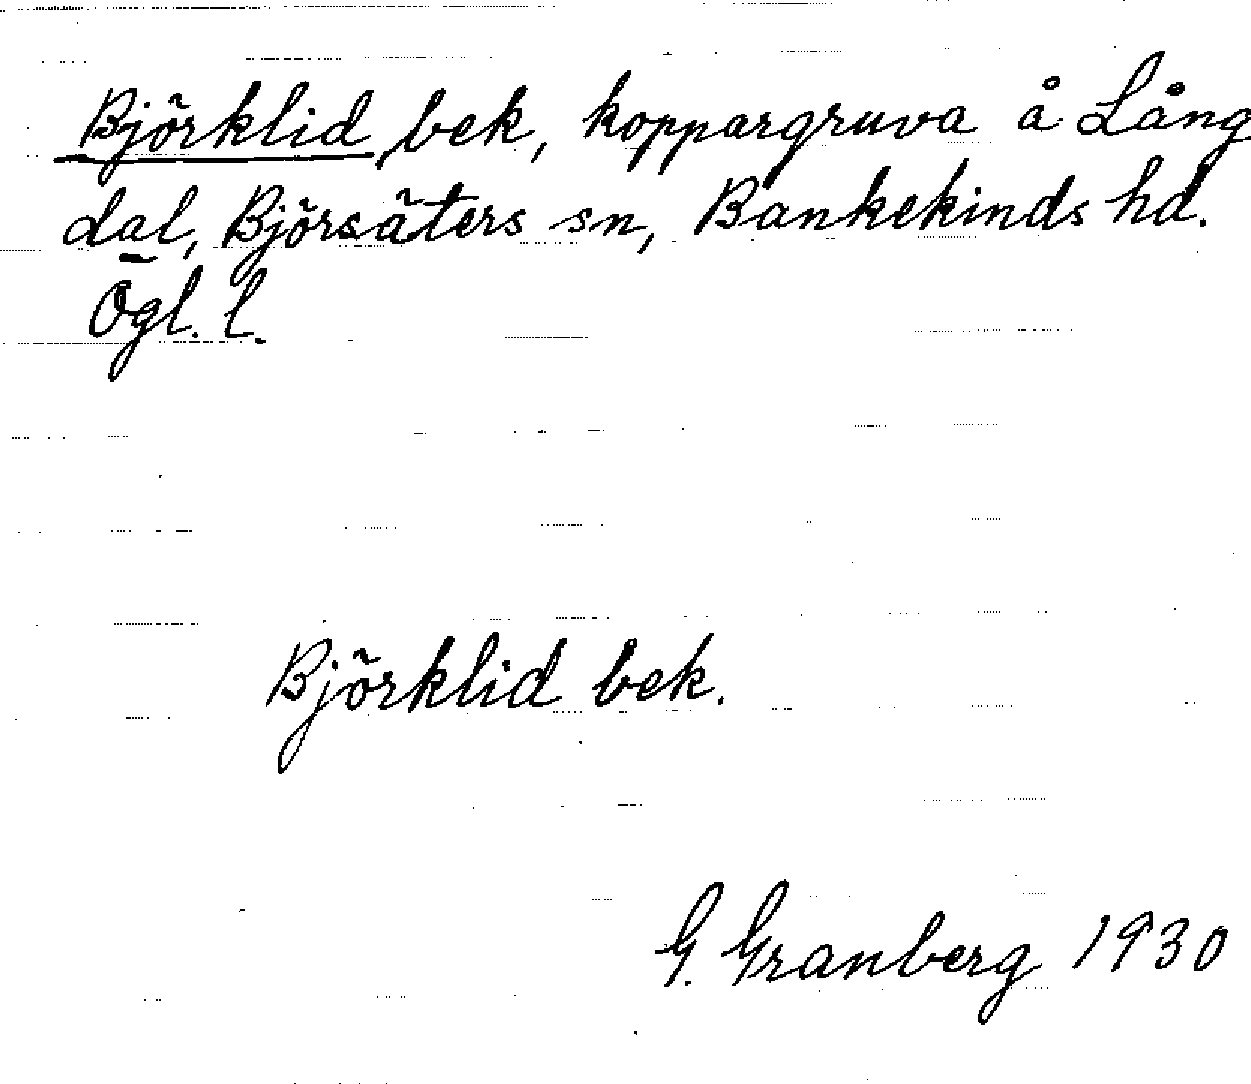 Björklid, bek, koppargruva å Lång
dal, Björsäters sn, Bankekinds hd.
Ögl. l.
Björklid bek.
G. Granberg 1930